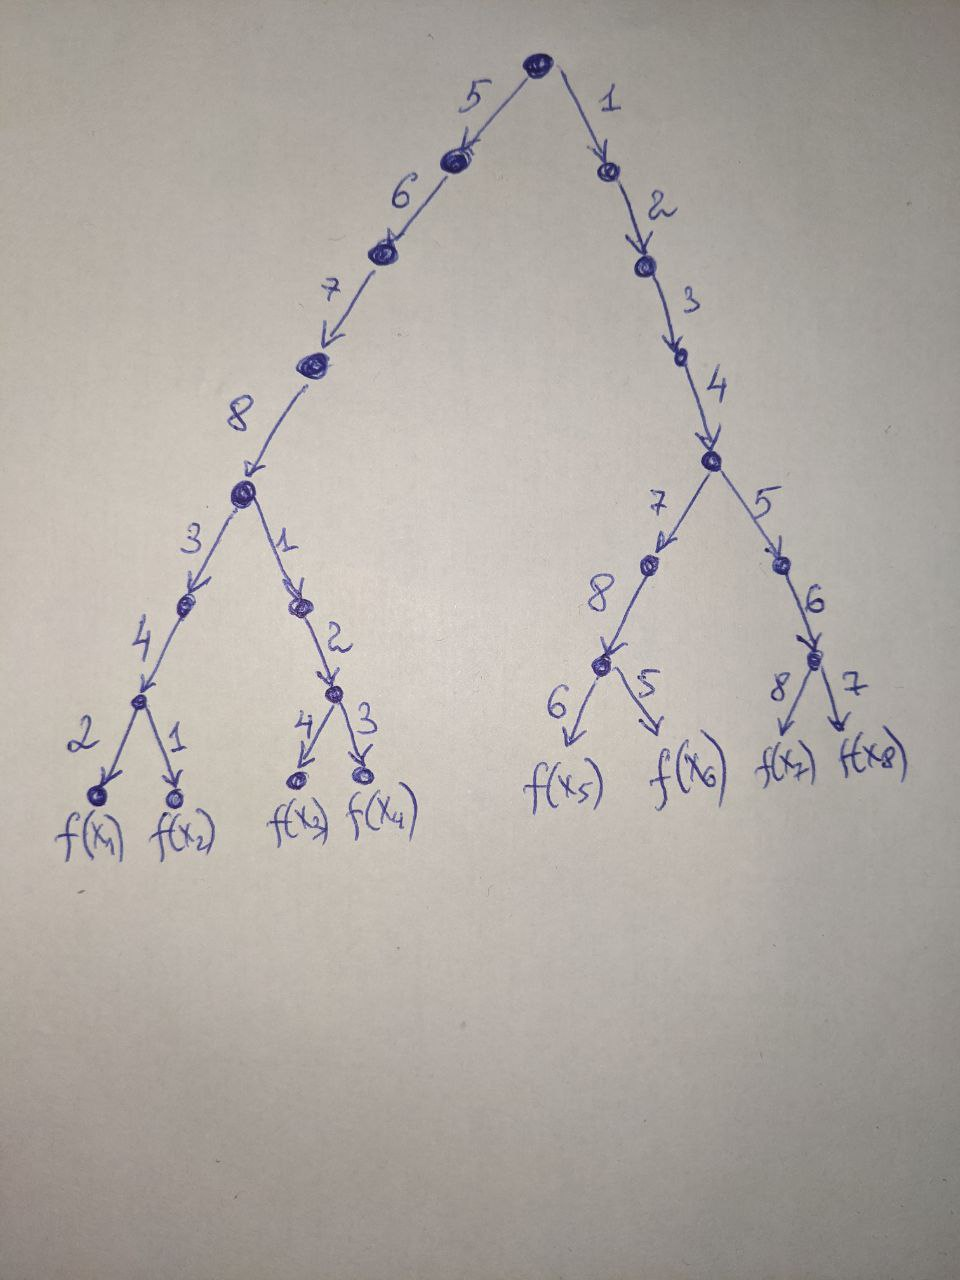 5 1
6 2
7 3
8 4
3 1 7 5
4 2 8 6
2 1 4 3 6 5 8 7
f(x₁) f(x₂) f(x₃) f(x₄) f(x₅) f(x₆) f(x₇) f(x₈)